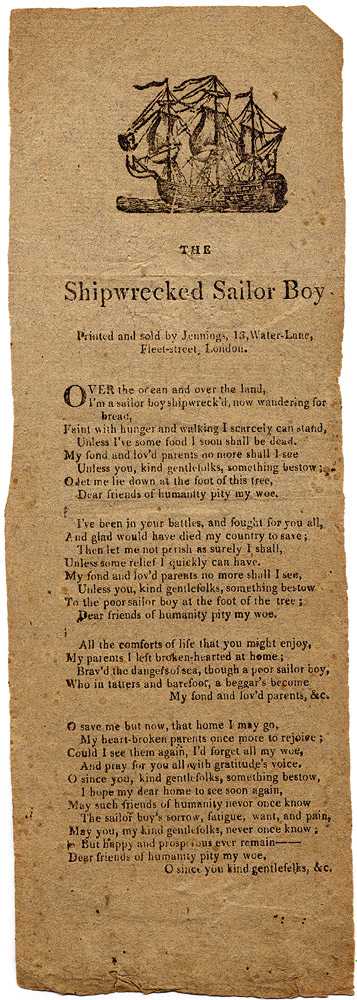 THE
Shipwrecked Sailor Boy
Printed and sold by Jennings, 13, Water-Lane,
Fleet-street, London.
OVER the ocean and over the land,
I'm a sailor boy shipwreck'd, now wandering for
bread,
Faint with hunger and walking I scarcely can stand,
Unless I've some food I soon shall be dead.
My fond and lov'd parents no more shall I see
Unless you, kind gentlefolks, something bestow;
O let me lie down at the foot of this tree,
Dear friends of humanity pity my woe.
I've been in your battles, and fought for you all,
And glad would have died my country to save;
Then let me not perish as surely I shall,
Unless some relief I quickly can have.
My fond and lov'd parents no more shall I see,
Unless you, kind gentlefolks, something bestow
To the poor sailor boy at the foot of the tree;
Dear friends of humanity pity my woe.
All the comforts of life that you might enjoy,
My parents I left broken-hearted at home;
Brav'd the dangers of sea, though a poor sailor boy,
Who in tatters and barefoot, a beggar's become
My fond and lov'd parents, &c.
O save me but now, that home I may go,
My heart-broken parents once more to rejoice;
Could I see them again, I'd forget all my woe,
And pray for you all with gratitude's voice.
O since you, kind gentlefolks, something bestow,
I hope my dear home to see soon again,
May such friends of humanity nevor once know
The sailor boy's sorrow, fatigue, want, and pain,
May you, my kind gentlefolks, never once know;
But happy and prosperous ever remain——
Dear friends of humanity pity my woe,
O since you kind gentlefolks, &c.